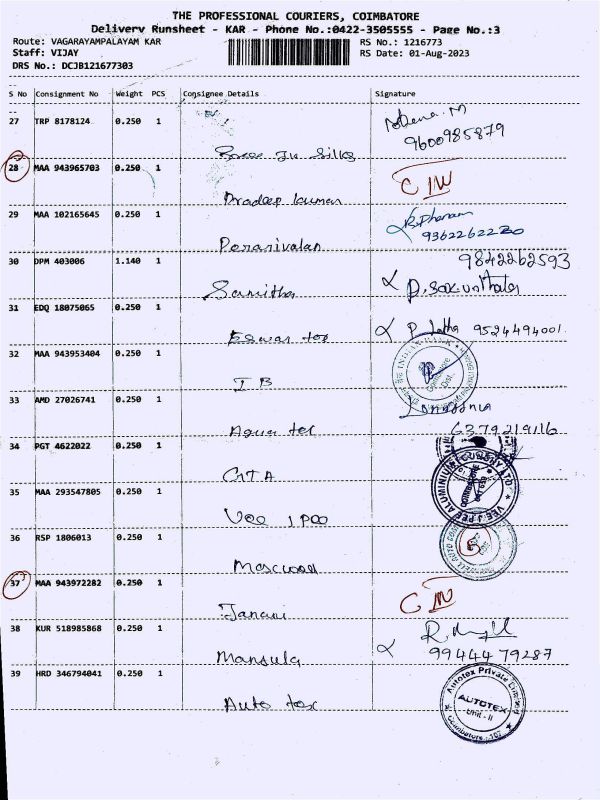 THE PROFESSIONAL COURIERS, COIMBATORE
Delivery Runsheet - KAR - Phone No.:0422-3505555 - Page No.:3
Route: VAGARAYAMPALAYAM KAR RS No.: 1216773
Staff: VIJAY RS Date: 01-Aug-2023
DRS No.: DCJB121677303
S No Consignment No Weight PCS Consignee Details Signature
27 TRP 8178124 0.250 1
9600985879
Silks
28 MAA 943965703 0.250 1
Pradeep kumar
29 MAA 102165645 0.250 1
9362262220
Porarivalan
30 DPM 403006 1.140 1 9842262593
Samitha
31 EDQ 18075065 0.250 1
Eswar tex P Latha 9524494001
32 MAA 943953404 0.250 1
IB
33 AMD 27026741 0.250 1
Aqua tel 6379219116
34 PGT 4622022 0.250 1
GTA
35 MAA 293547805 0.250 1
VEE J PEE ALUMINIUM FOUNDRY
Vee J Pee
36 RSP 1806013 0.250 1
37 MAA 943972282 0.250 1
Janani
38 KUR 518985868 0.250 1
Mansula 9944479287
39 HRD 346794041 0.250 1
Autotex Private Limited
AUTOTEX
Unit - II
Auto tex